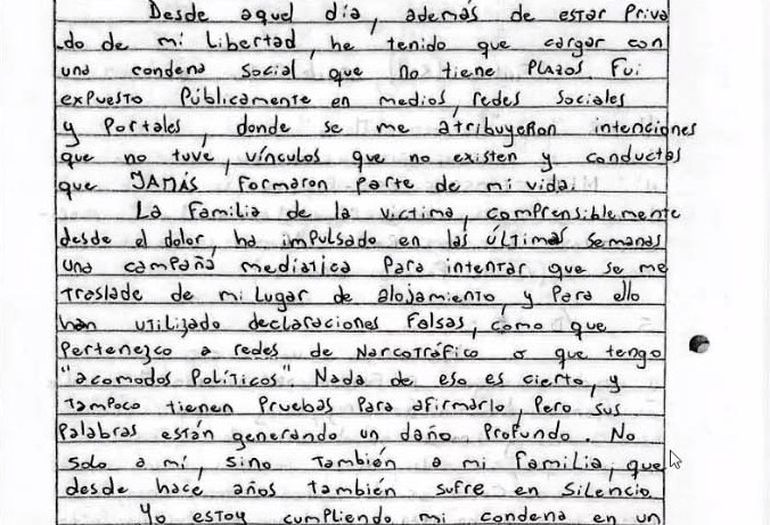 Desde aquel día, además de estar priva
do de mi libertad, he tenido que cargar con
una condena social que no tiene PLAZOS. Fui
expuesto públicamente en medios, redes sociales
y portales, donde se me atribuyeron intenciones
que no tuve, vínculos que no existen y conductas
que JAMÁS formaron parte de mi vida.
La familia de la victima, comprensiblemente
desde el dolor, ha impulsado en las últimas semanas
una campaña mediatica para intentar que se me
traslade de mi lugar de alojamiento, y para ello
han utilizado declaraciones falsas, como que
pertenezco a redes de narcotráfico o que tengo
"acomodos políticos" Nada de eso es cierto, y
tampoco tienen pruebas para afirmarlo, pero sus
palabras están generando un daño profundo. No
solo a mí, sino también a mi familia, que
desde hace años también sufre en silencio
Yo estoy cumpliendo mi condena en un